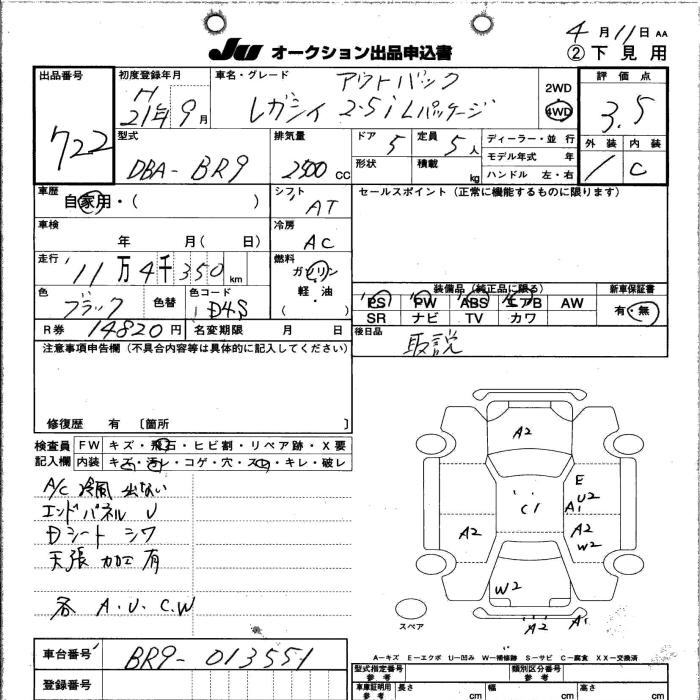 4月11日 AA
②下見用
JU オークション出品申込書
出品番号
722
初度登録年月
H
21年9月
車名・グレード
アウトバック
レガシィ 2.5i Lパッケージ
2WD
4WD
評価点
3.5
外装 内装
C
型式
DBA-BR9
排気量
2500 cc
ドア 5
形状
定員 5人
積載 kg
ディーラー・並行
モデル年式 年
ハンドル 左・右
車歴
自家用・( )
シフト
AT
セールスポイント(正常に機能するものに限ります)
車検
年 月( 日)
冷房
AC
走行
11万4千350km
燃料
ガソリン
軽・油
( )
色
ブラック
色替
色コード
D4S
R券 14820円
名変期限 月 日
装備品(純正品に限る)
PS PW ABS エアB AW
SR ナビ TV カワ
新車保証書
有・無
後日品
取説
注意事項申告欄(不具合内容等は具体的に記入してください)
修復歴 有 〔箇所 〕
検査員
記入欄
FW キズ・飛石・ヒビ割・リペア跡・X要
内装 キズ・汚レ・コゲ・穴・スレ・キレ・破レ
A/C 冷風 出ない
エンドパネル U
Dシート シワ
天張 加工 有
各 A.U.C.W
A2
E
U2
A1
C1
A2
A2
W2
W2
A2
A1
スペア
A-キズ E-エクボ U-凹み W-補修跡 S-サビ C-腐食 XX-交換済
車台番号
BR9-013551
登録番号
型式指定番号
参考
類別区分番号
参考
車庫証明用
参考
長さ cm
幅 cm
高さ cm